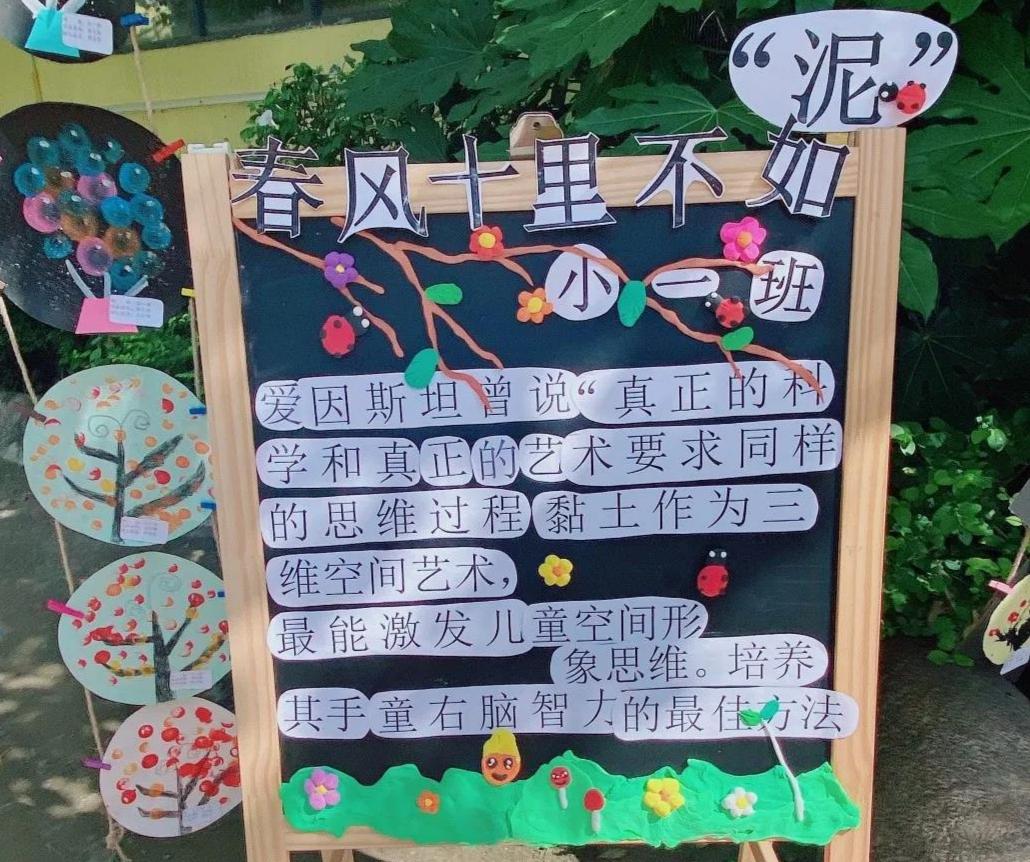 “泥”
春风十里不如
小一班
爱因斯坦曾说“真正的科
学和真正的艺术要求同样
的思维过程黏土作为三
维空间艺术，
最能激发儿童空间形
象思维。培养
其手童右脑智力的最佳方法